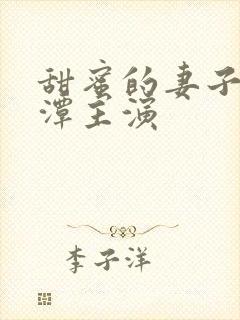 甜蜜的妻子
潭主演
李子洋